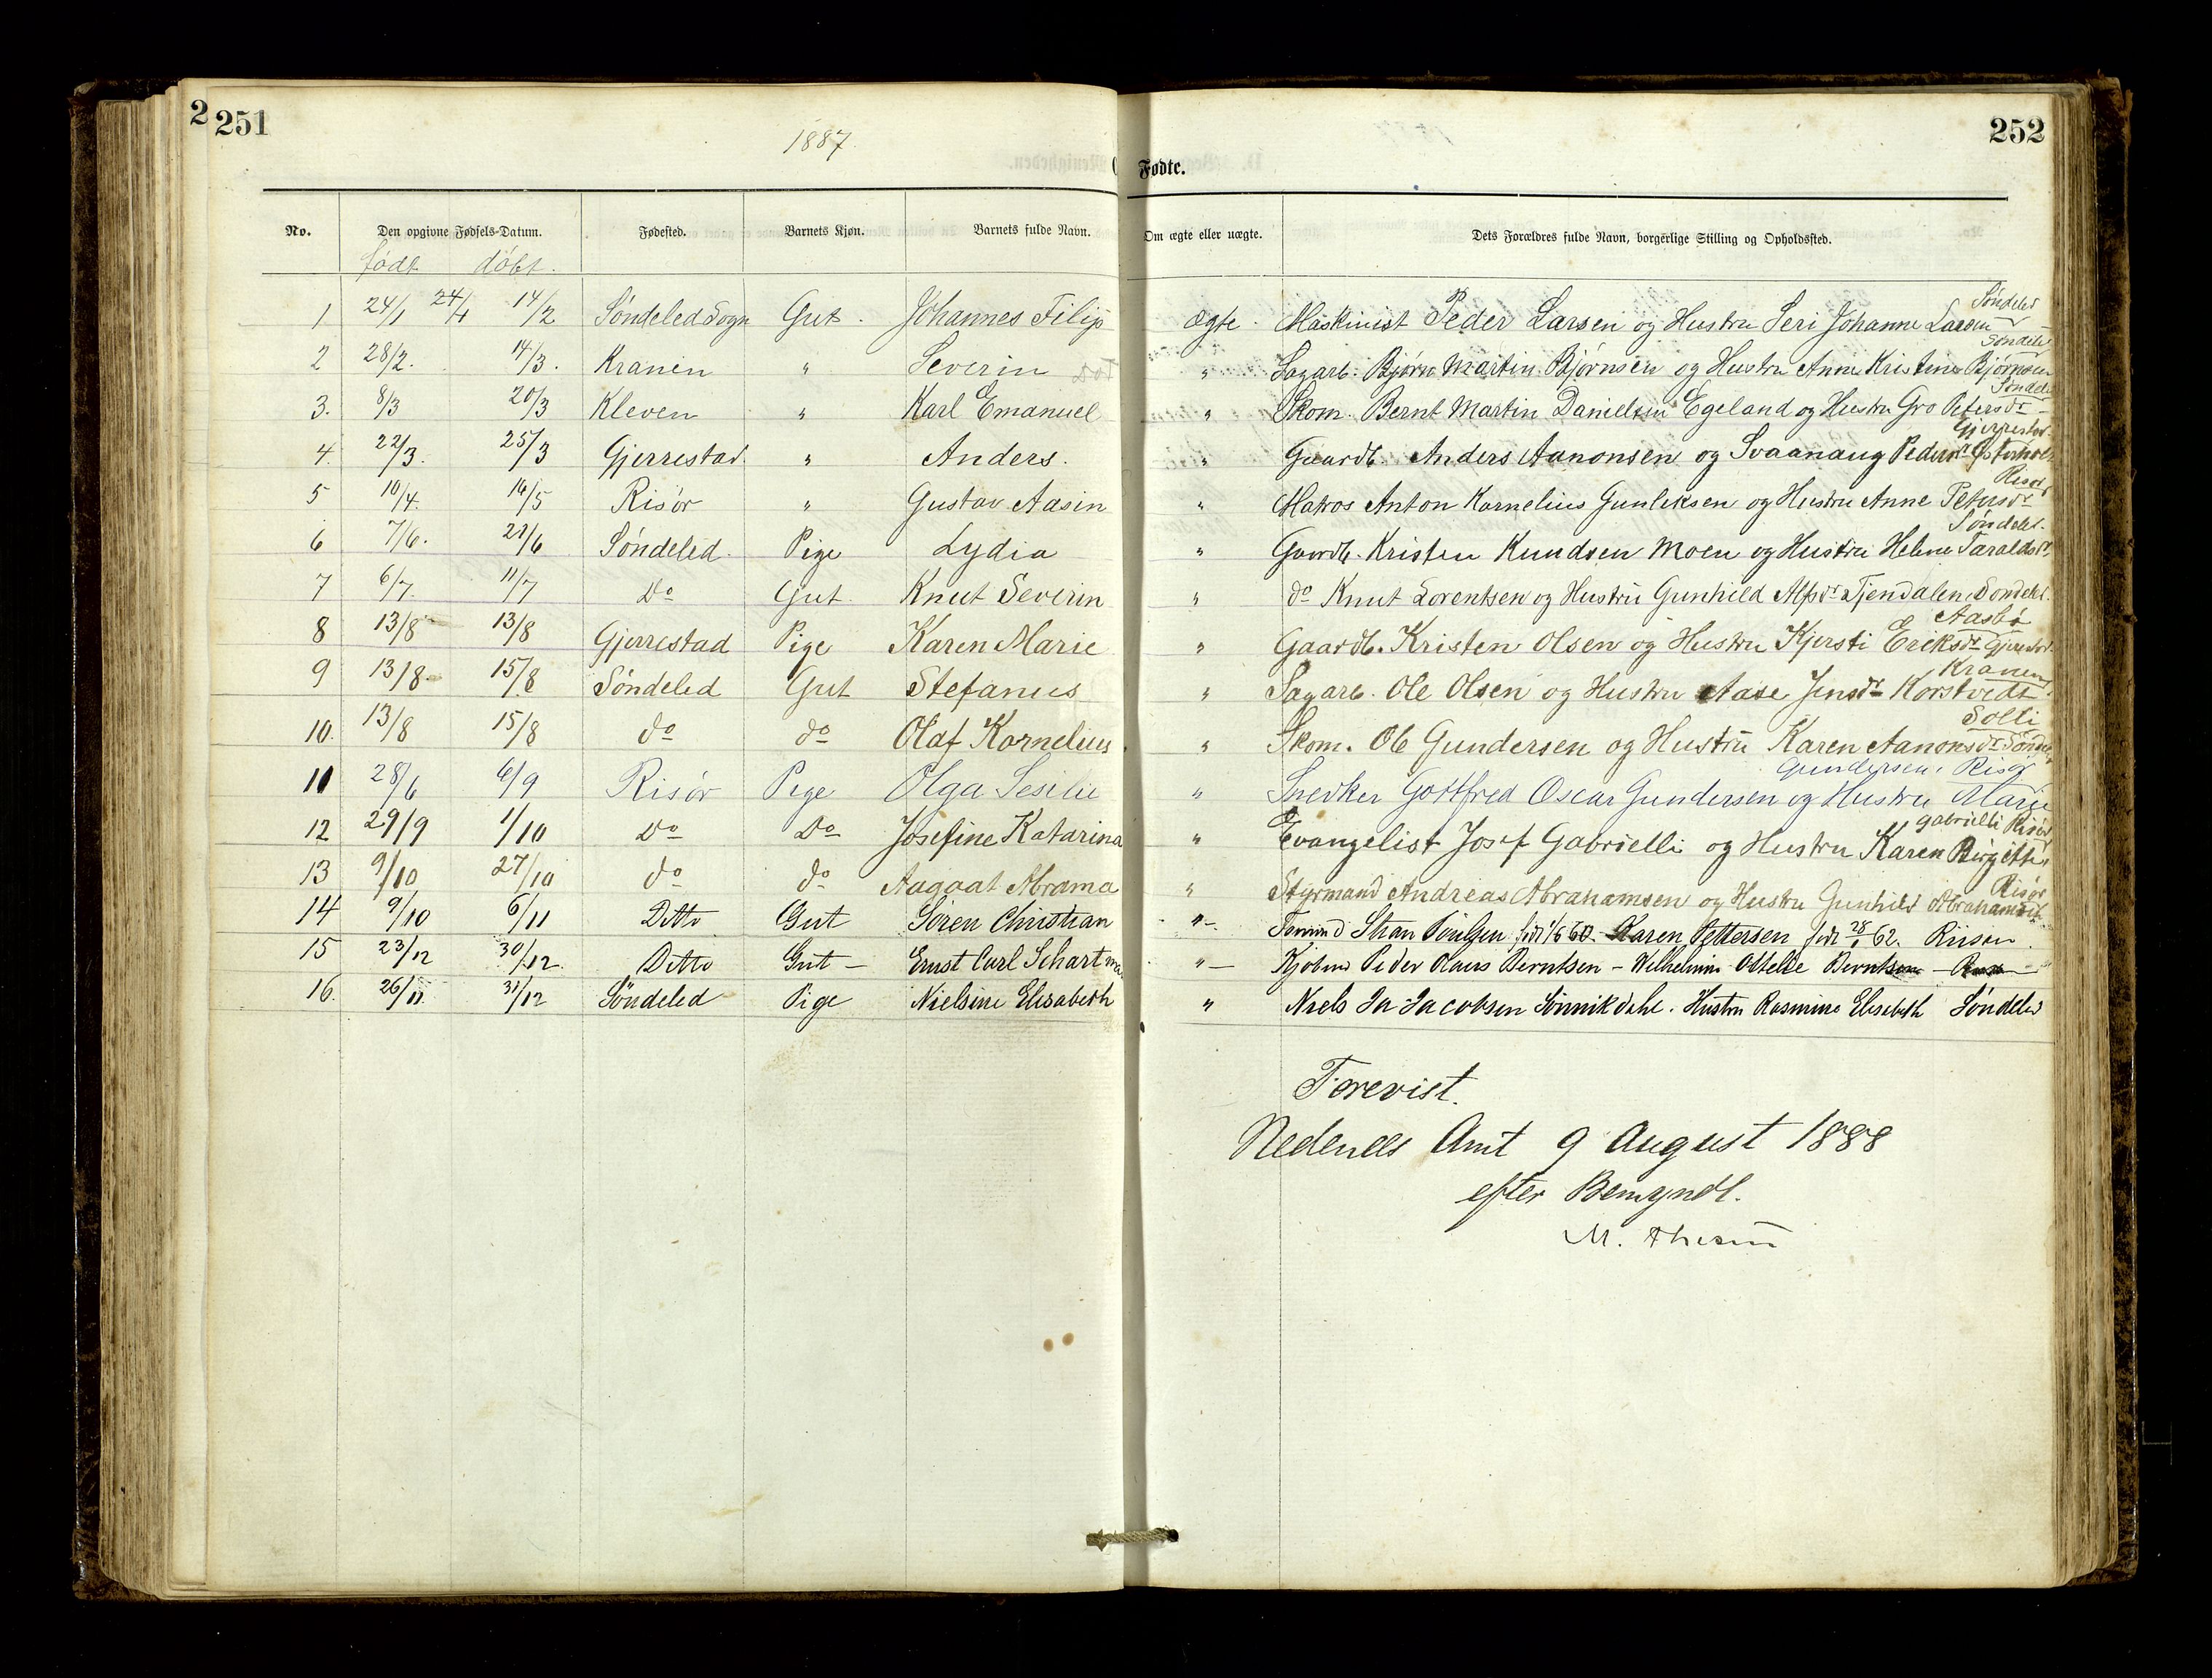 2 251
1887.
252
Fødte.
No. Den opgivne Fødsels-Datum. Fødested. Barnets Kjøn. Barnets fulde Navn. Om ægte eller uægte. Dets Forældres fulde Navn, borgerlige Stilling og Opholdssted.
født döbt.
Söndeled
1 24/1 24/1 14/2 Söndeled Sogn Gut. Johannes Filip ægte. Maskinist Peder Larsen og Hustru Seri Johanne Larsen
Söndeled
2 28/2. 14/3. Kranen " Severin " Sagarb. Bjørn Martin Bjørnsen og Hustru Anne Kristine Bjørnsen
Sönded
3. 8/3 20/3 Kleven " Karl Emanuel " Skom. Bernt Martin Danielsen Egeland og Hustru Gro Petersdr
Gjerrestad.
4. 22/3. 25/3 Gjerrestad " Anders. " Gaardb. Anders Aanonsen og Svaanaug Pedersdr Østerholt
Risør
5 10/4. 16/5 Risör " Gustav Aasin " Matros Anton Kornelius Gunleksen og Hustru Anne Petersdr
Söndeled.
6 7/6. 21/6 Söndeled. Pige Lydia " Gaardb. Kristen Knudsen Moen og Hustru Helene Taraldsdr.
7 6/7. 11/7 Do Gut. Knut Severin " do Knut Lorentsen og Hustru Gunhild Alfsdr Tjendalen, Sondeled.
Aasbø
8 13/8 13/8 Gjerrestad Pige Karen Marie " Gaardb. Kristen Olsen og Hustru Kjersti Eriksdr Gjerrestad.
Kranen
9 13/8 15/8 Söndeled Gut Stefanus " Sagarb. Ole Olsen og Hustru Aase Jensdr Korstvedt
Solli
10. 13/8 15/8 do do Olaf Kornelius. " Skom. Ole Gundersen og Hustru Karen Aanonsdr Söndeled
Gundersen, Risør
11 28/6 6/9 Risör Pige Olga Sesilie " Snedker Gottfred Oscar Gundersen og Hustru Marie
Gabrielli Risør
12 29/9 1/10 Do Do Josefine Katarina " Evangelist Josef Gabrielli og Hustru Karen Birgitte
Risør
13 9/10 27/10 do do Aagaat Abrama " Styrmand Andreas Abrahamsen og Hustru Gunhild Abrahamsdt.
14 9/10 6/11 Ditto Gut Sören Christian " Karen Pettersen født 28 62. Riisøer.
15 23/12 30/12. Ditto Gut - Ernst Carl Schartma " Kjøbmd Peder Olaus Berntsen - Wilhelmine Ottelie Berntsen -
16. 26/11 31/12 Söndeled Pige Nielsine Elisabeth " Niels Ja Jacobsen Sönnikdahl. Hustru Rasmine Elisabeth Söndeled
Forevist.
Nedenes Amt 9 August 1888
efter Bemyndl.